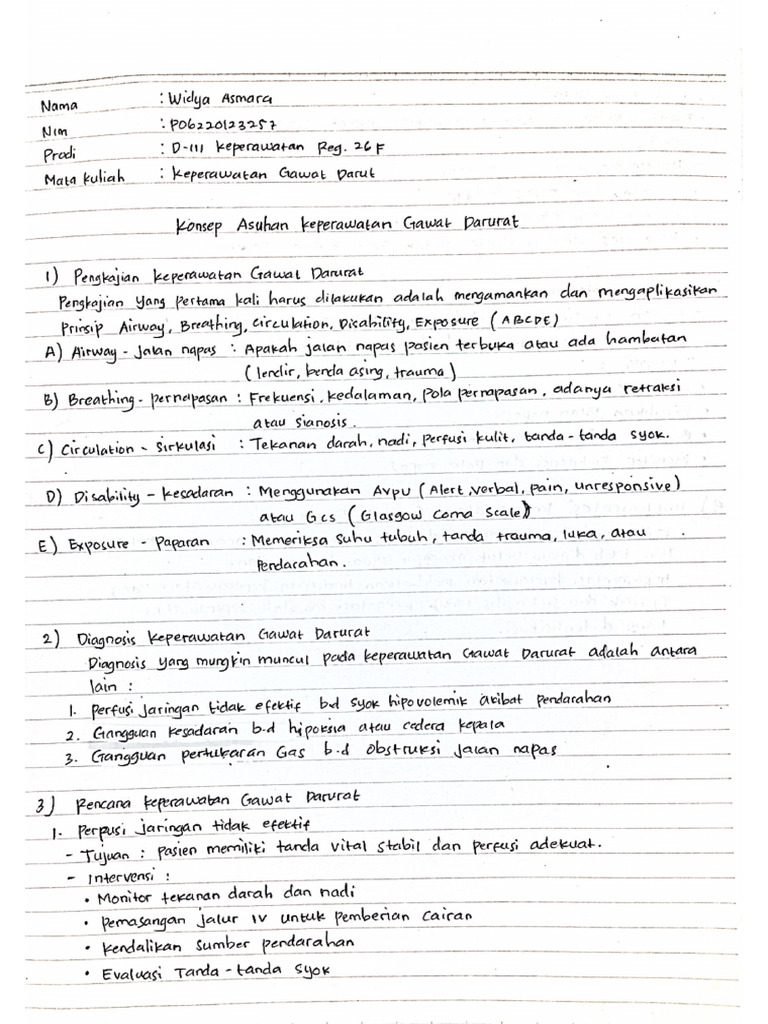 Nama : Widya Asmara
Nim : P06220123257
Prodi : D-III Keperawatan Reg. 26 F
Mata kuliah : Keperawatan Gawat Darut
Konsep Asuhan Keperawatan Gawat Darurat
1) Pengkajian Keperawatan Gawat Darurat
Pengkajian yang pertama kali harus dilakukan adalah mengamankan dan mengaplikasikan
Prinsip Airway, Breathing, Circulation, Disability, Exposure (ABCDE)
A) Airway - Jalan napas : Apakah jalan napas pasien terbuka atau ada hambatan
(lendir, benda asing, trauma)
B) Breathing - pernapasan : Frekuensi, kedalaman, pola pernapasan, adanya retraksi
atau sianosis.
C) Circulation - Sirkulasi : Tekanan darah, nadi, perfusi kulit, tanda-tanda syok.
D) Disability - kesadaran : Menggunakan AVPU (Alert, verbal, pain, unresponsive)
atau Gcs (Glasgow Coma Scale)
E) Exposure - Paparan : Memeriksa suhu tubuh, tanda trauma, luka, atau
Pendarahan.
2) Diagnosis Keperawatan Gawat Darurat
Diagnosis yang mungkin muncul pada keperawatan Gawat Darurat adalah antara
lain :
1. perfusi jaringan tidak efektif b.d syok hipovolemik akibat pendarahan
2. Gangguan kesadaran b.d hipoksia atau cedera kepala
3. Gangguan pertukaran Gas b.d obstruksi jalan napas
3) Rencana Keperawatan Gawat Darurat
1. Perpusi jaringan tidak efektif
- Tujuan : pasien memiliki tanda vital stabil dan perfusi adekuat.
- Intervensi :
• Monitor tekanan darah dan nadi
• Pemasangan jalur IV untuk pemberian cairan
• Kendalikan sumber pendarahan
• Evaluasi Tanda-tanda syok